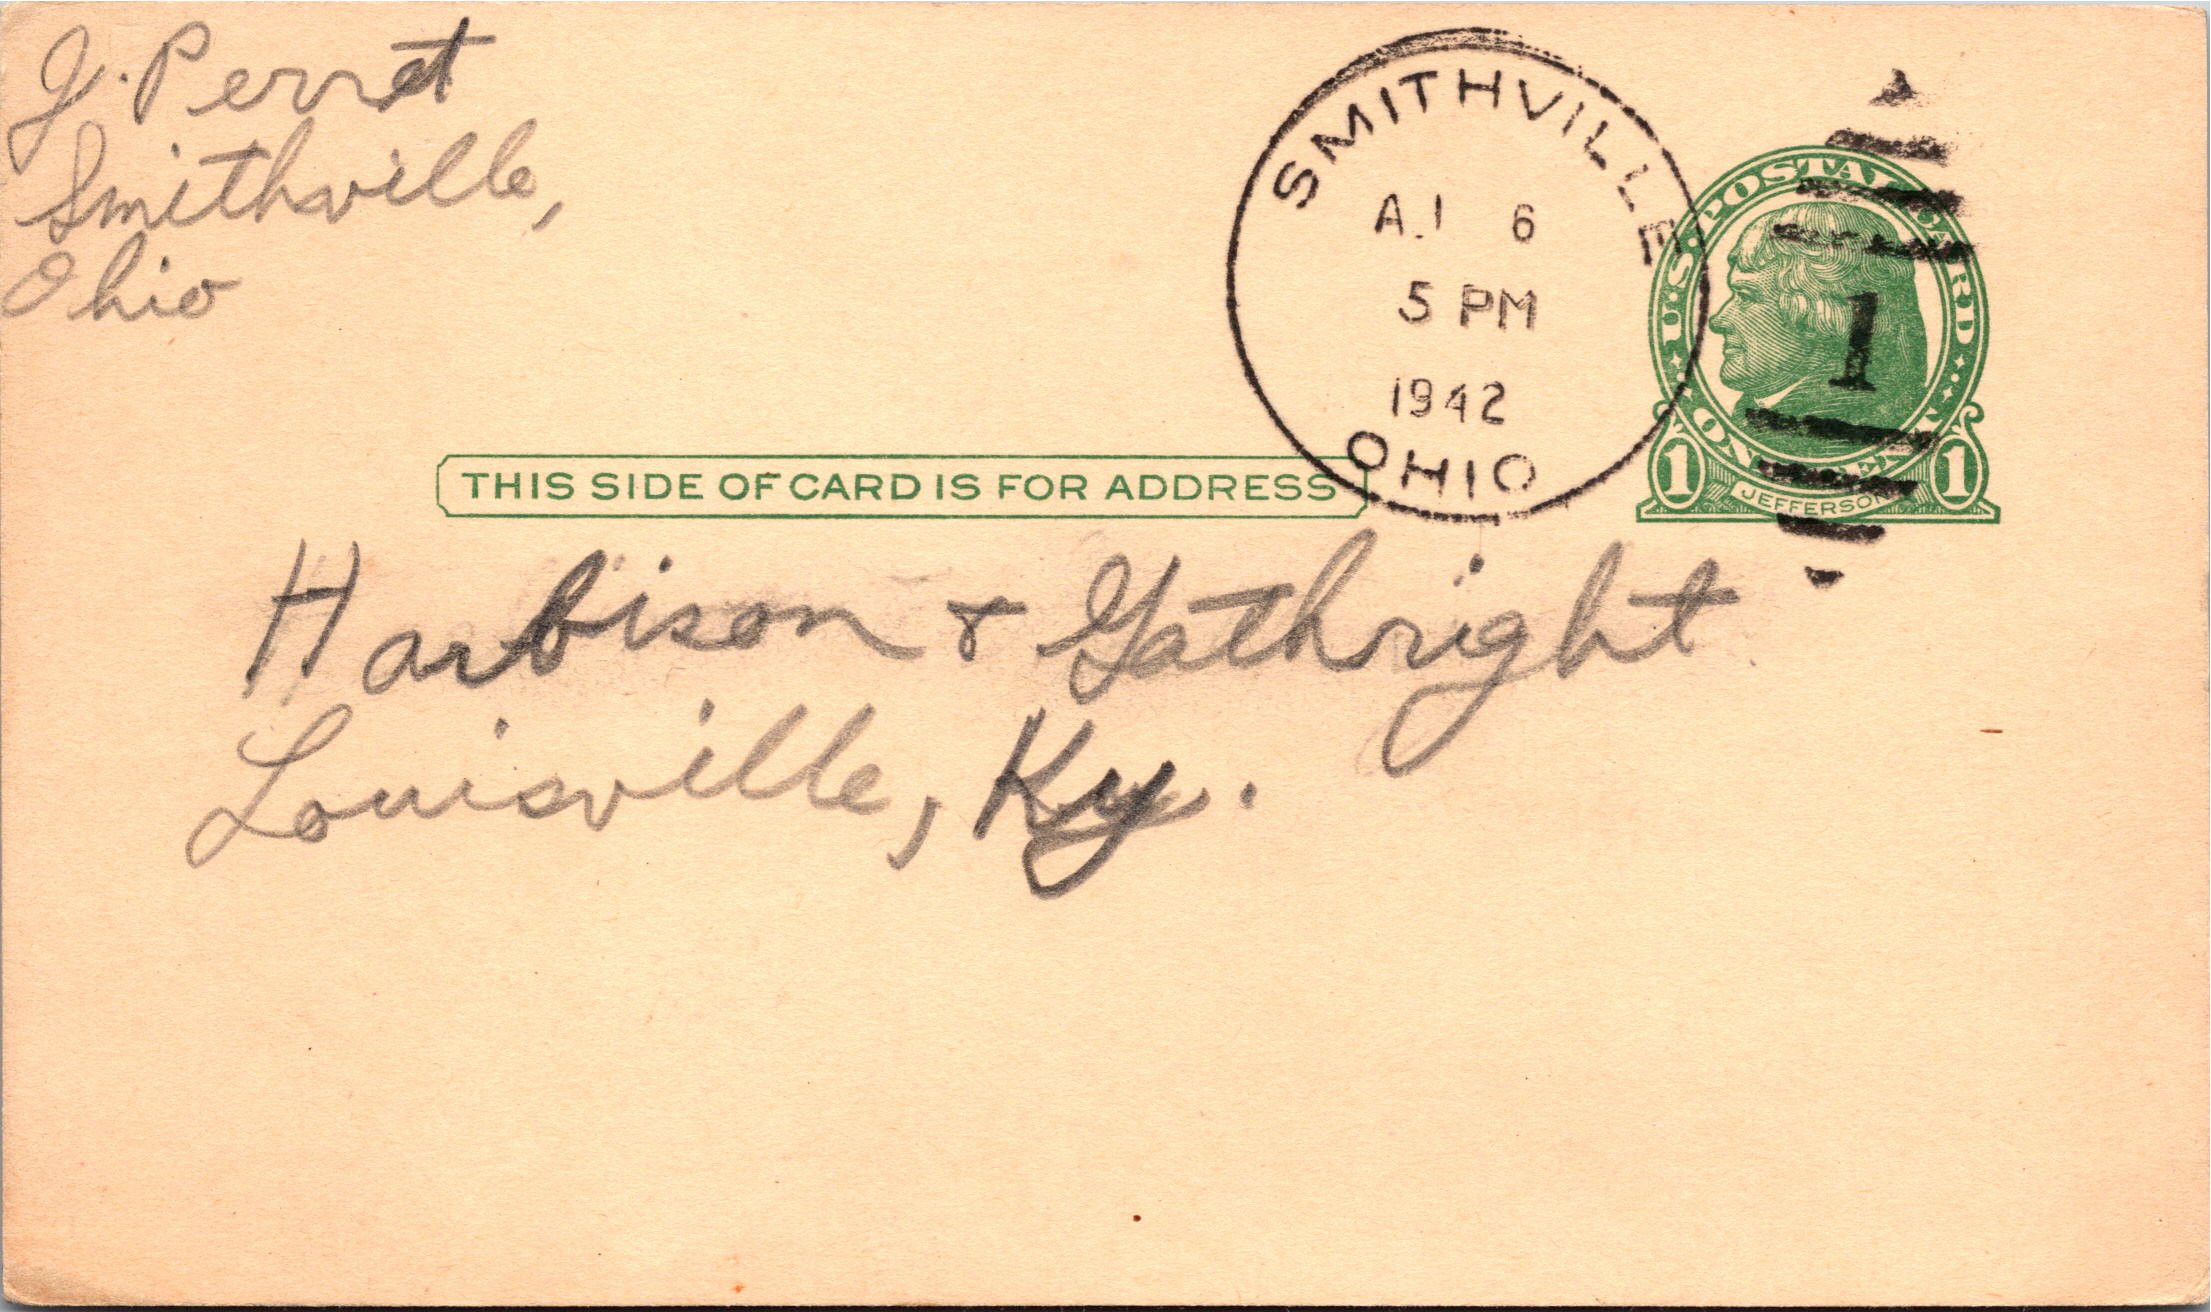 J. Perret
Smithville,
Ohio
SMITHVILLE
6
5 PM
1942
OHIO
U.S. POSTAL CARD
1
ONE CENT
1 JEFFERSON 1
THIS SIDE OF CARD IS FOR ADDRESS
Harbison & Gathright
Louisville, Ky.